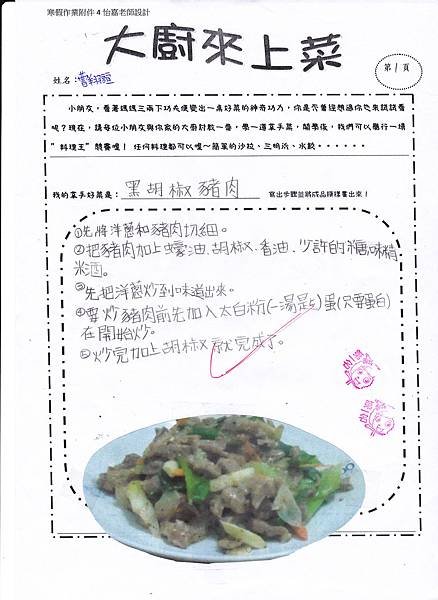 寒假作業附件4怡嘉老師設計
大廚來上菜
第1頁
姓名：
小朋友，看著媽媽三兩下功夫便變出一桌好菜的神奇功力，你是否曾經想過你也來試試看
呢？現在，請每位小朋友與你家的大廚討教一番，學一道拿手菜，開學後，我們可以舉行一場
"料理王"競賽喔！任何料理都可以喔～簡單的沙拉、三明治、水餃‧‧‧‧‧‧
我的拿手好菜是：黑胡椒豬肉 寫出步驟並將成品模樣畫出來！
①先將洋蔥和豬肉切細。
②把豬肉加上蠔油、胡椒、香油、少許的糖、味精
米酒。
③先把洋蔥炒到味道出來。
④要炒豬肉前先加入太白粉(一湯匙)蛋(只要蛋白)
在開始炒。
⑤炒完加上胡椒就完成了。